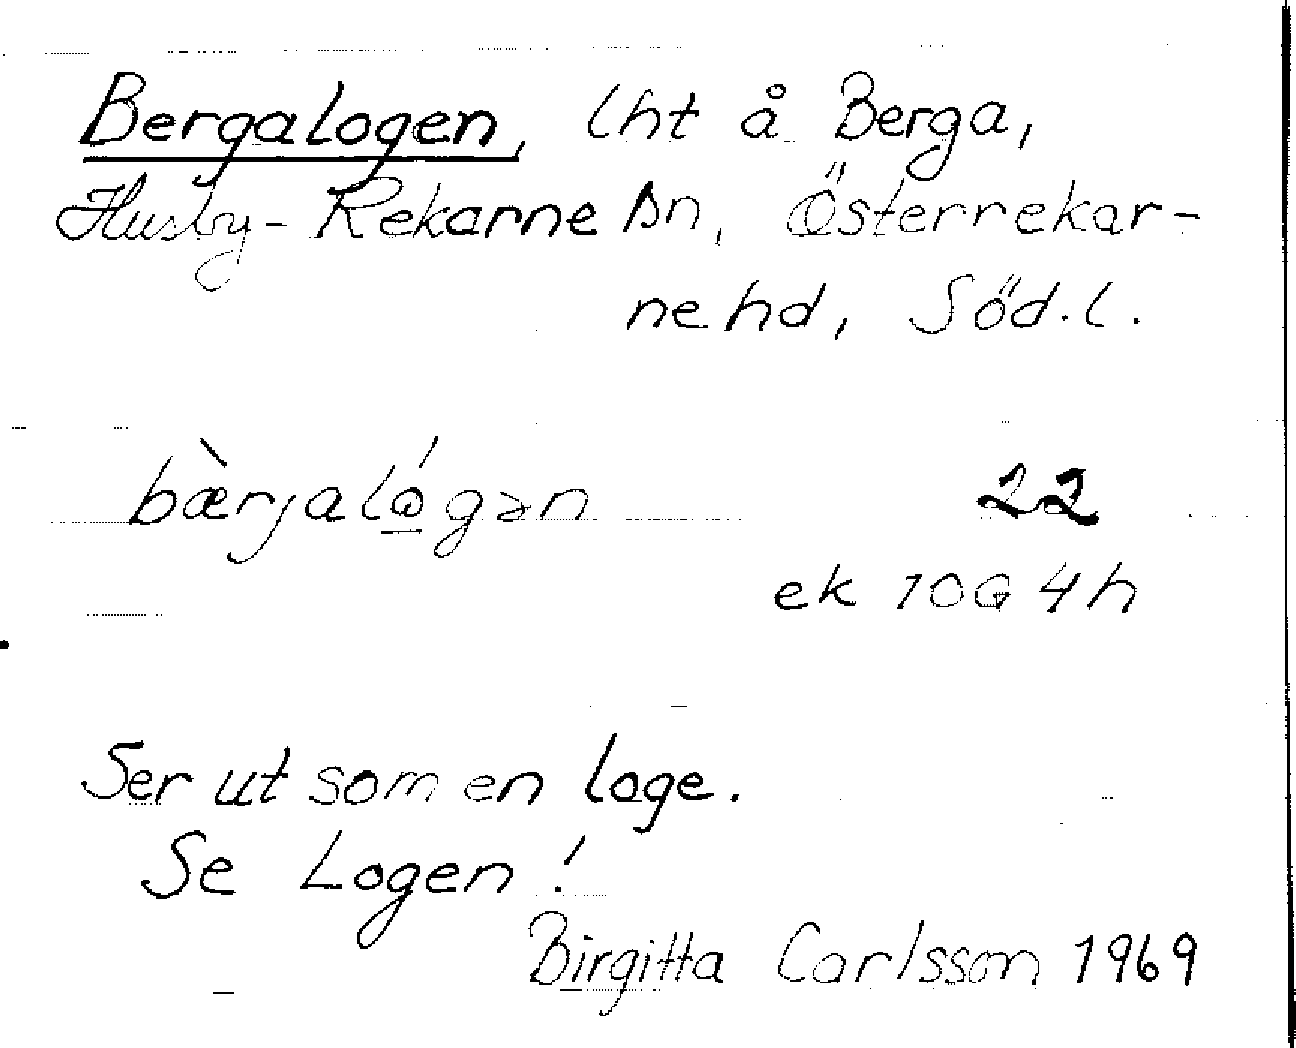 Bergalogen, lht å Berga,
Husby-Rekarne sn, Österrekar-
nehd, Söd.l.
bæ̀rjalógən
22
ek 10G 4h
Ser ut som en loge.
Se Logen!
Birgitta Carlsson 1969